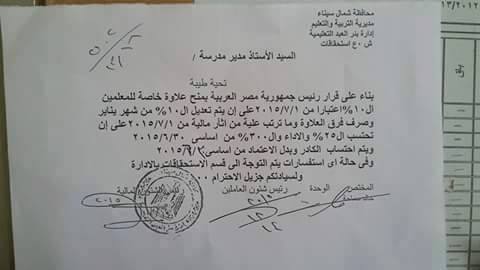 محافظة شمال سيناء
مديرية التربية والتعليم
إدارة بئر العبد التعليمية
ش . ع استحقاقات
السيد الأستاذ مدير مدرسة /
تحية طيبة
بناء على قرار رئيس جمهورية مصر العربية بمنح علاوة خاصة للمعلمين
ال١٠% اعتبارا من ٢٠١٥/٧/١ على إن يتم تعديل ال١٠% من شهر يناير
وصرف فرق العلاوة وما ترتب علية من اثار مالية من ٢٠١٥/٧/١ على إن
تحتسب ال٢٥% والاداء وال٣٠٠% من اساسى ٢٠١٥/٦/٣٠
ويتم احتساب الكادر وبدل الاعتماد من اساسى
وفى حالة اى استفسارات يتم التوجة الى قسم الاستحقاقات بالادارة
ولسيادتكم جزيل الاحترام ٠٠٠
المختص الوحدة رئيس شئون العاملين المالية
١٣/٢٠١٢